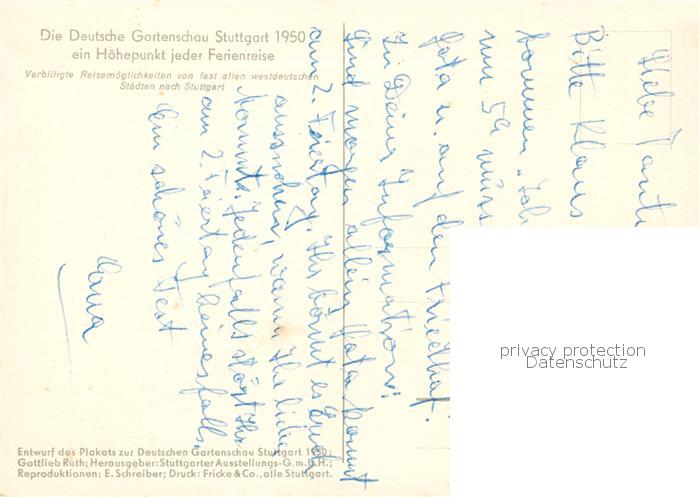 Die Deutsche Gartenschau Stuttgart 1950
ein Höhepunkt jeder Ferienreise
Verbilligte Reisemöglichkeiten von fast allen westdeutschen
Städten nach Stuttgart
Liebe Tante
Bitte Klaus
kommen. Ich
um 5h
u. auf den Friedhof.
Zu Deiner Information:
Sind morgen allein. Vata kommt
am 2. Feiertag. Ihr könnt es Euch
aussuchen, wann Ihr lieber
kommt. Jedenfalls stört Ihr
am 2. Feiertag keinesfalls.
Ein schönes Fest
Entwurf des Plakats zur Deutschen Gartenschau Stuttgart 1950:
Gottlieb Ruth; Herausgeber: Stuttgarter Ausstellungs-G.m.b.H.;
Reproduktionen: E. Schreiber; Druck: Fricke & Co., alle Stuttgart.
privacy protection
Datenschutz